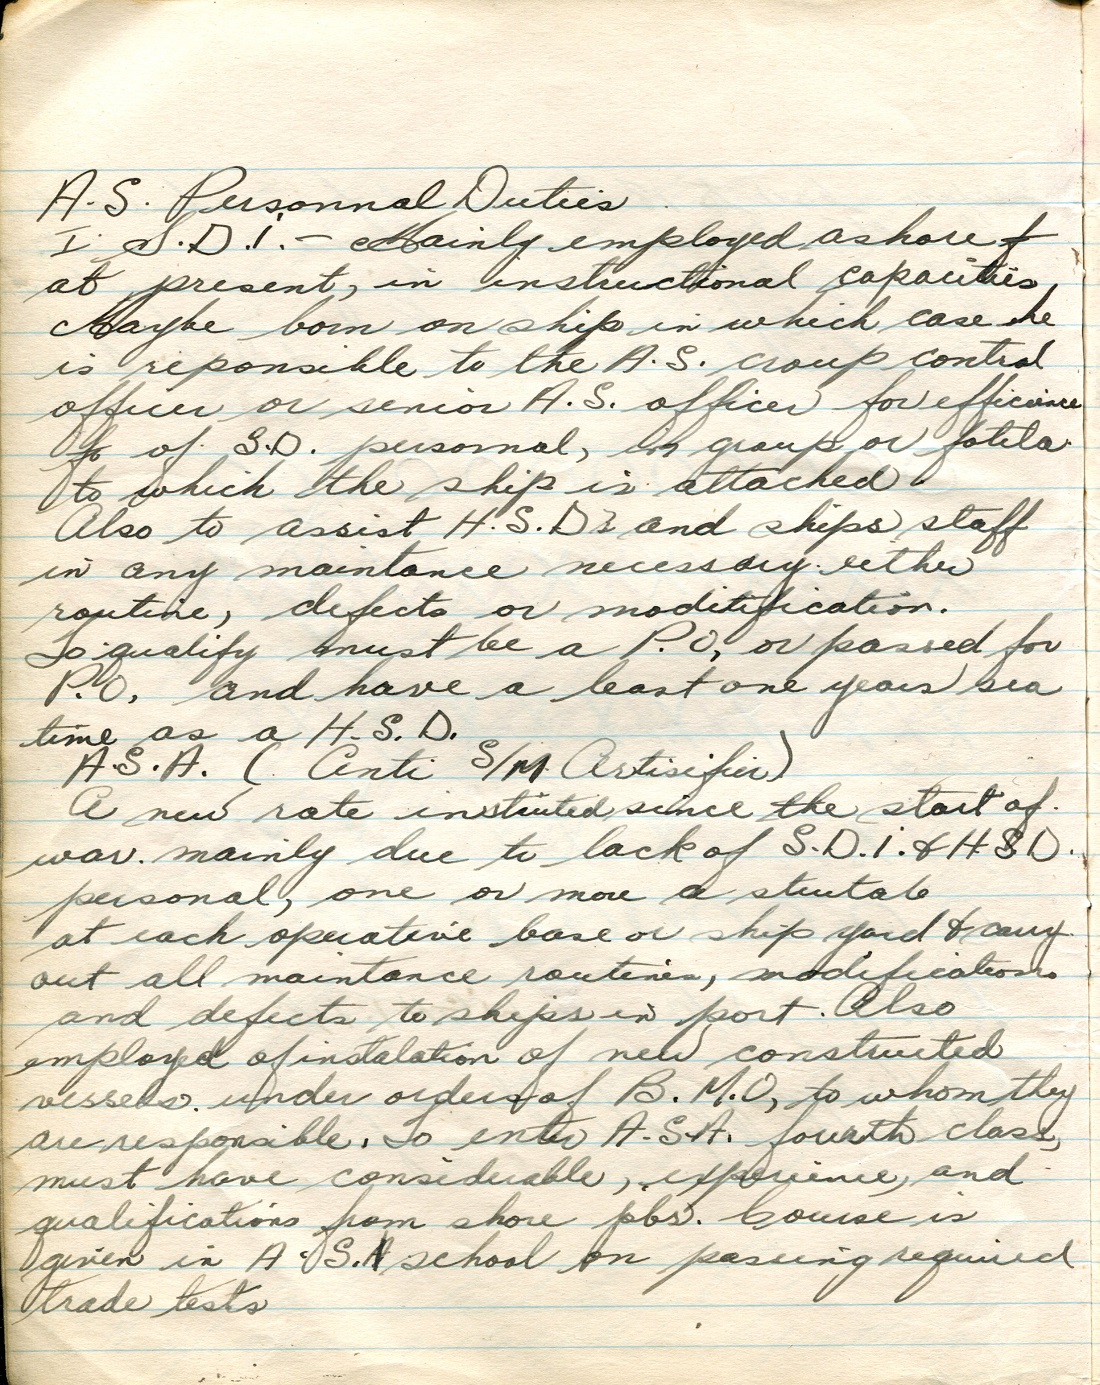 A.S. Personnal Duties
I. S.D.I. - Mainly employed ashore &
at present, in instructional capacities,
Maybe born on ship in which case he
is reponsible to the A.S. croup control
officer or senior A.S. officer for
of S.D. personal, in group or
to which the ship is attached.
Also to assist H.S.D's and ships staff
in any maintance necessary. either
routine, defects or moditification.
To qualify must be a P.O, or passed for
P.O, and have a least one years sea
time as a H.S.D.
A.S.A. ( Anti S/M Artisifier)
A new rate since the start of
war. mainly due to lack of S.D.I. & HSD.
personal, one or more a
at each operative base or ship yard & carry
out all maintance routines, modifications
and defects to ships in port. Also
employed of instalation of new constructed
vessels. under orders of B.M.O, to whom they
are responsible. To enter A.S.A. fourth class,
must have considerable, experience, and
qualifications from shore jobs. Course is
given in A.S.A school on passing required
trade tests